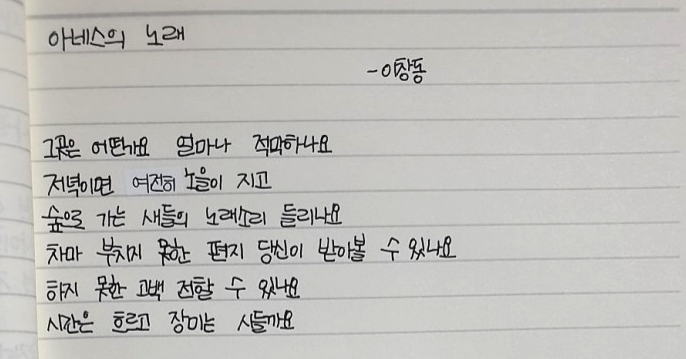 아네스의 노래
-이창동
그곳은 어떤가요 얼마나 적막하나요
저녁이면 여전히 노을이 지고
숲으로 가는 새들의 노래소리 들리나요
차마 부치지 못한 편지 당신이 받아볼 수 있나요
하지 못한 고백 전할 수 있나요
시간은 흐르고 장미는 시들까요